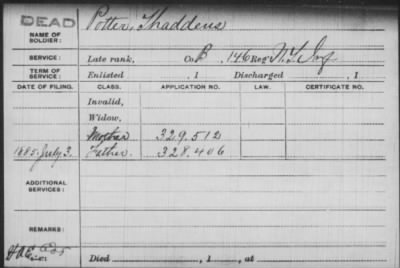 DEAD
NAME OF SOLDIER: Potter, Thaddeus
SERVICE: Late rank, Co. B, 146 Reg't N.Y. Inf
TERM OF SERVICE: Enlisted , 1 Discharged , 1
DATE OF FILING. CLASS. APPLICATION NO. LAW. CERTIFICATE NO.
Invalid,
Widow,
Mother 329.512
1885 July 3. Father. 328.406
ADDITIONAL SERVICES:
REMARKS:
Died , 1 , at